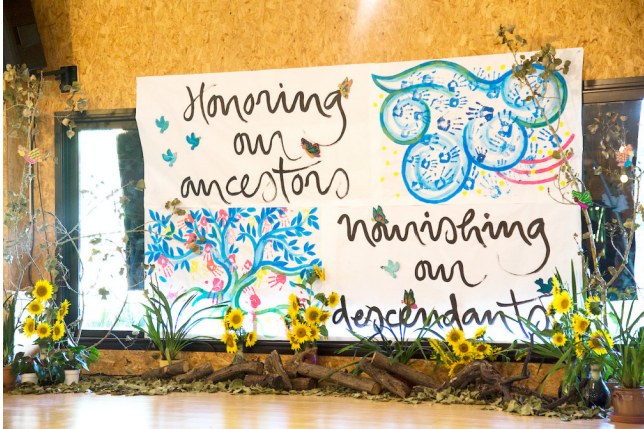 Honoring
our
ancestors
nourishing
our
descendants